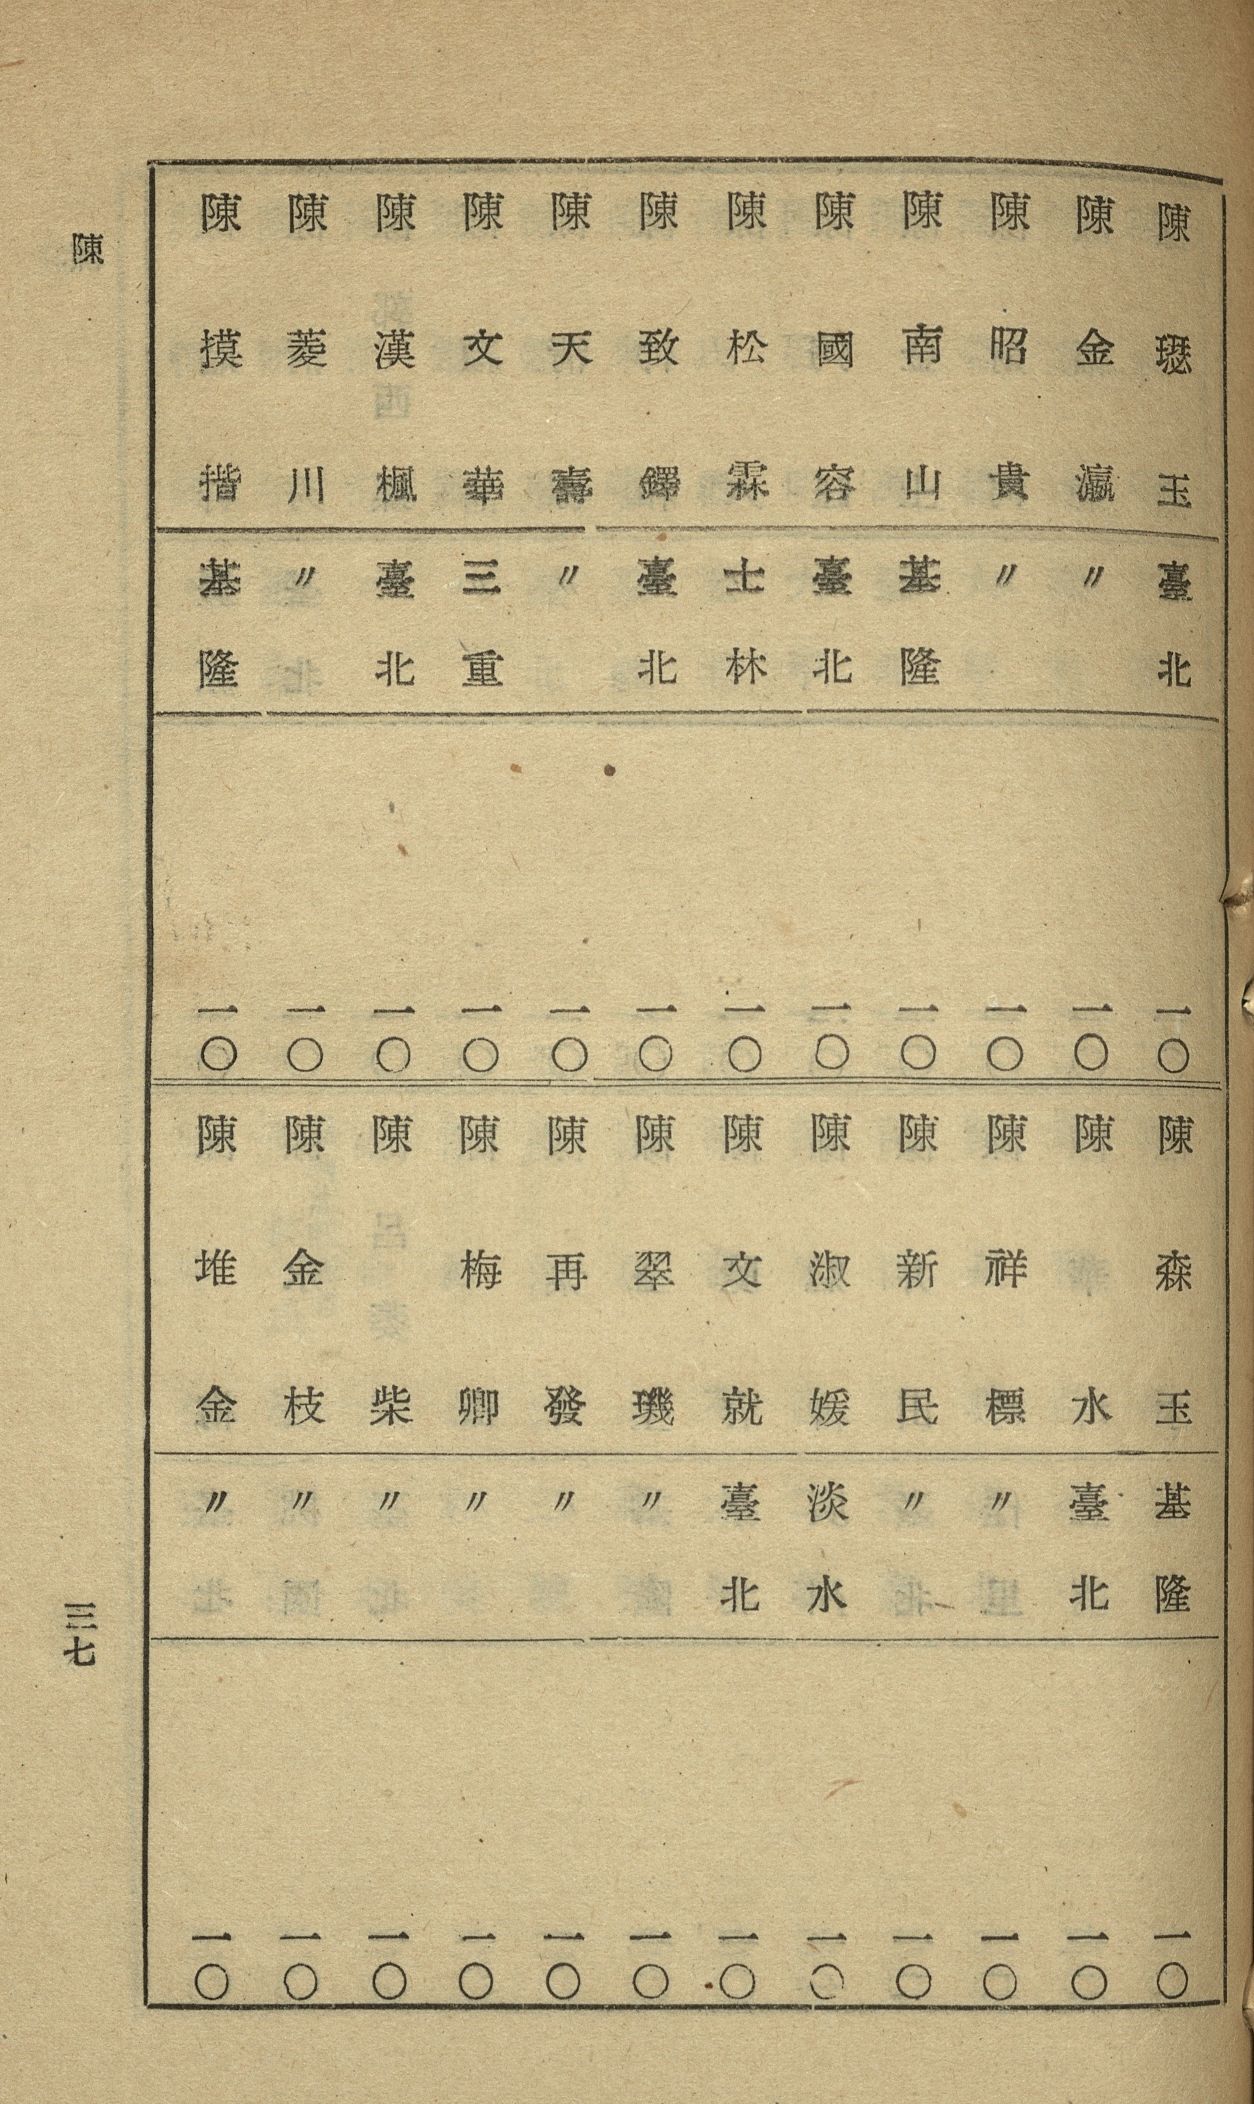 陳玉 臺北 一〇
陳金瀛 〃 一〇
陳昭貴 〃 一〇
陳南山 基隆 一〇
陳國容 臺北 一〇
陳松霖 士林 一〇
陳致鐸 臺北 一〇
陳天壽 〃 一〇
陳文華 三重 一〇
陳漢楓 臺北 一〇
陳菱川 〃 一〇
陳摸揩 基隆 一〇
陳森玉 基隆 一〇
陳水 臺北 一〇
陳祥標 〃 一〇
陳新民 〃 一〇
陳淑媛 淡水 一〇
陳文就 臺北 一〇
陳翠璣 〃 一〇
陳再發 〃 一〇
陳梅卿 〃 一〇
陳柴 〃 一〇
陳金枝 〃 一〇
陳堆金 〃 一〇
陳
三七